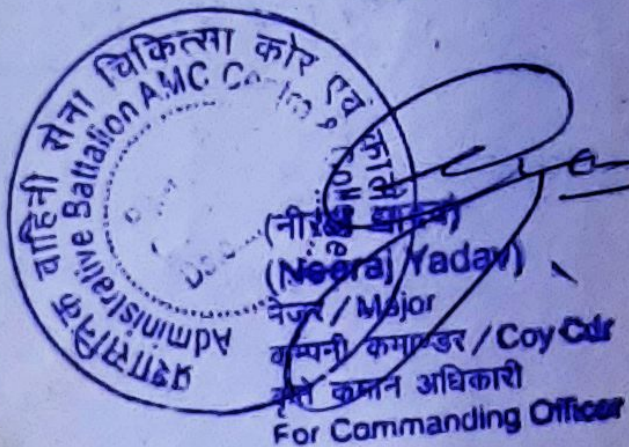 प्रशासनिक वाहिनी सेना चिकित्सा कोर एवं
Administrative Battalion AMC
(Neeraj Yadav)
मेजर / Major
कम्पनी कमाण्डर / Coy Cdr
कृते कमान अधिकारी
For Commanding Officer